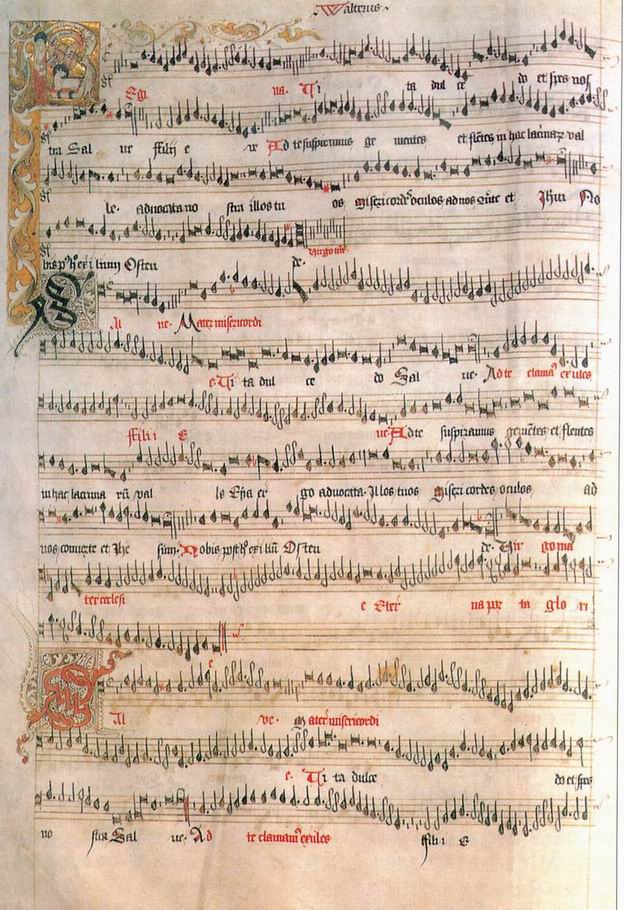 Walterus.
Egi na. Ti ta dul ce do et spes nos
tra Sal ve ffilij e ve Ad te suspiramus ge mentes et flētes in hac lacrimaꝝ val
le. advocata no stra illos tu os misericordes oculos ad nos et Jhm No
bis Osten de. Virgo mr̄
Al ve. Mater misericordi
e. Ti ta dul ce do Sal ve. Ad te clamamꝰ exules
ffili i E ve Ad te suspiramus gemētes et flentes
in hac lacrima rū val le Eya er go advocata. Illos tuos Misericordes oculos, ad
nos converte et Jhe sum. Nobis Osten de. Vir go ma
ter ecclesi e Eter na por ta glo ri
Al ve. Mater misericordi
e. Ti ta dulce do et spes
no stra Sal ve. Ad te clamamꝰ exules ffili i E